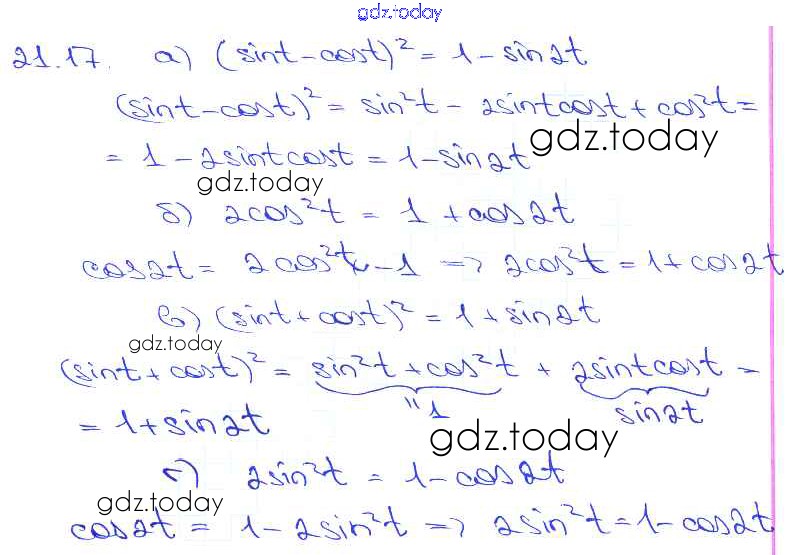 gdz.today
21.17. а) (sint-cost)² = 1 - sin2t
(sint-cost)² = sin²t - 2sintcost + cos²t =
gdz.today
= 1 - 2sintcost = 1 - sin2t
gdz.today
б) 2cos²t = 1 + cos2t
cos2t = 2cos²t - 1 => 2cos²t = 1 + cos2t
в) (sint + cost)² = 1 + sin2t
gdz.today
(sint + cost)² = sin²t + cos²t + 2sintcost =
"1 sin2t
= 1 + sin2t
gdz.today
г) 2sin²t = 1 - cos2t
gdz.today
cos2t = 1 - 2sin²t => 2sin²t = 1 - cos2t